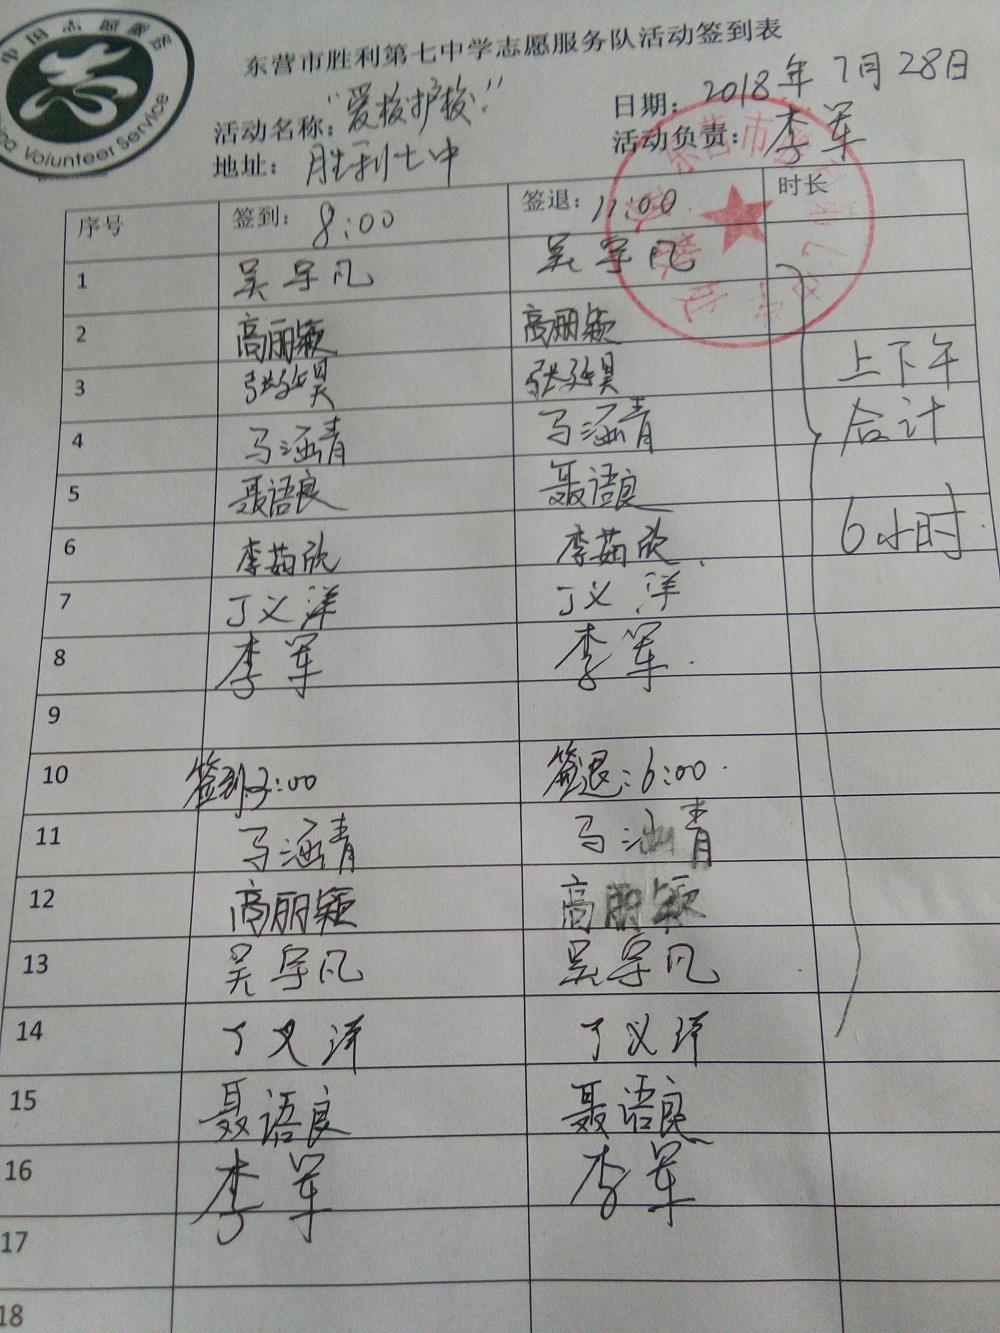 中国志愿服务
China Volunteer Service
东营市胜利第七中学志愿服务队活动签到表
活动名称：“爱校护校！” 日期：2018年7月28日
地址：胜利七中 活动负责：李军
序号 签到：8:00 签退：11:00 时长
1 吴宇凡 吴宇凡
2 高丽颖 高丽颖
3 张 昊 张 昊
上下午
4 马涵青 马涵青
合计
5 聂语良 聂语良
6 李茹欣 李茹欣
6小时
7 丁义洋 丁义洋
8 李军 李军
9
10 签到3:00 签退：6:00
11 马涵青 马涵青
12 高丽颖 高丽颖
13 吴宇凡 吴宇凡
14 丁义洋 丁义洋
15 聂语良 聂语良
16 李军 李军
17
18